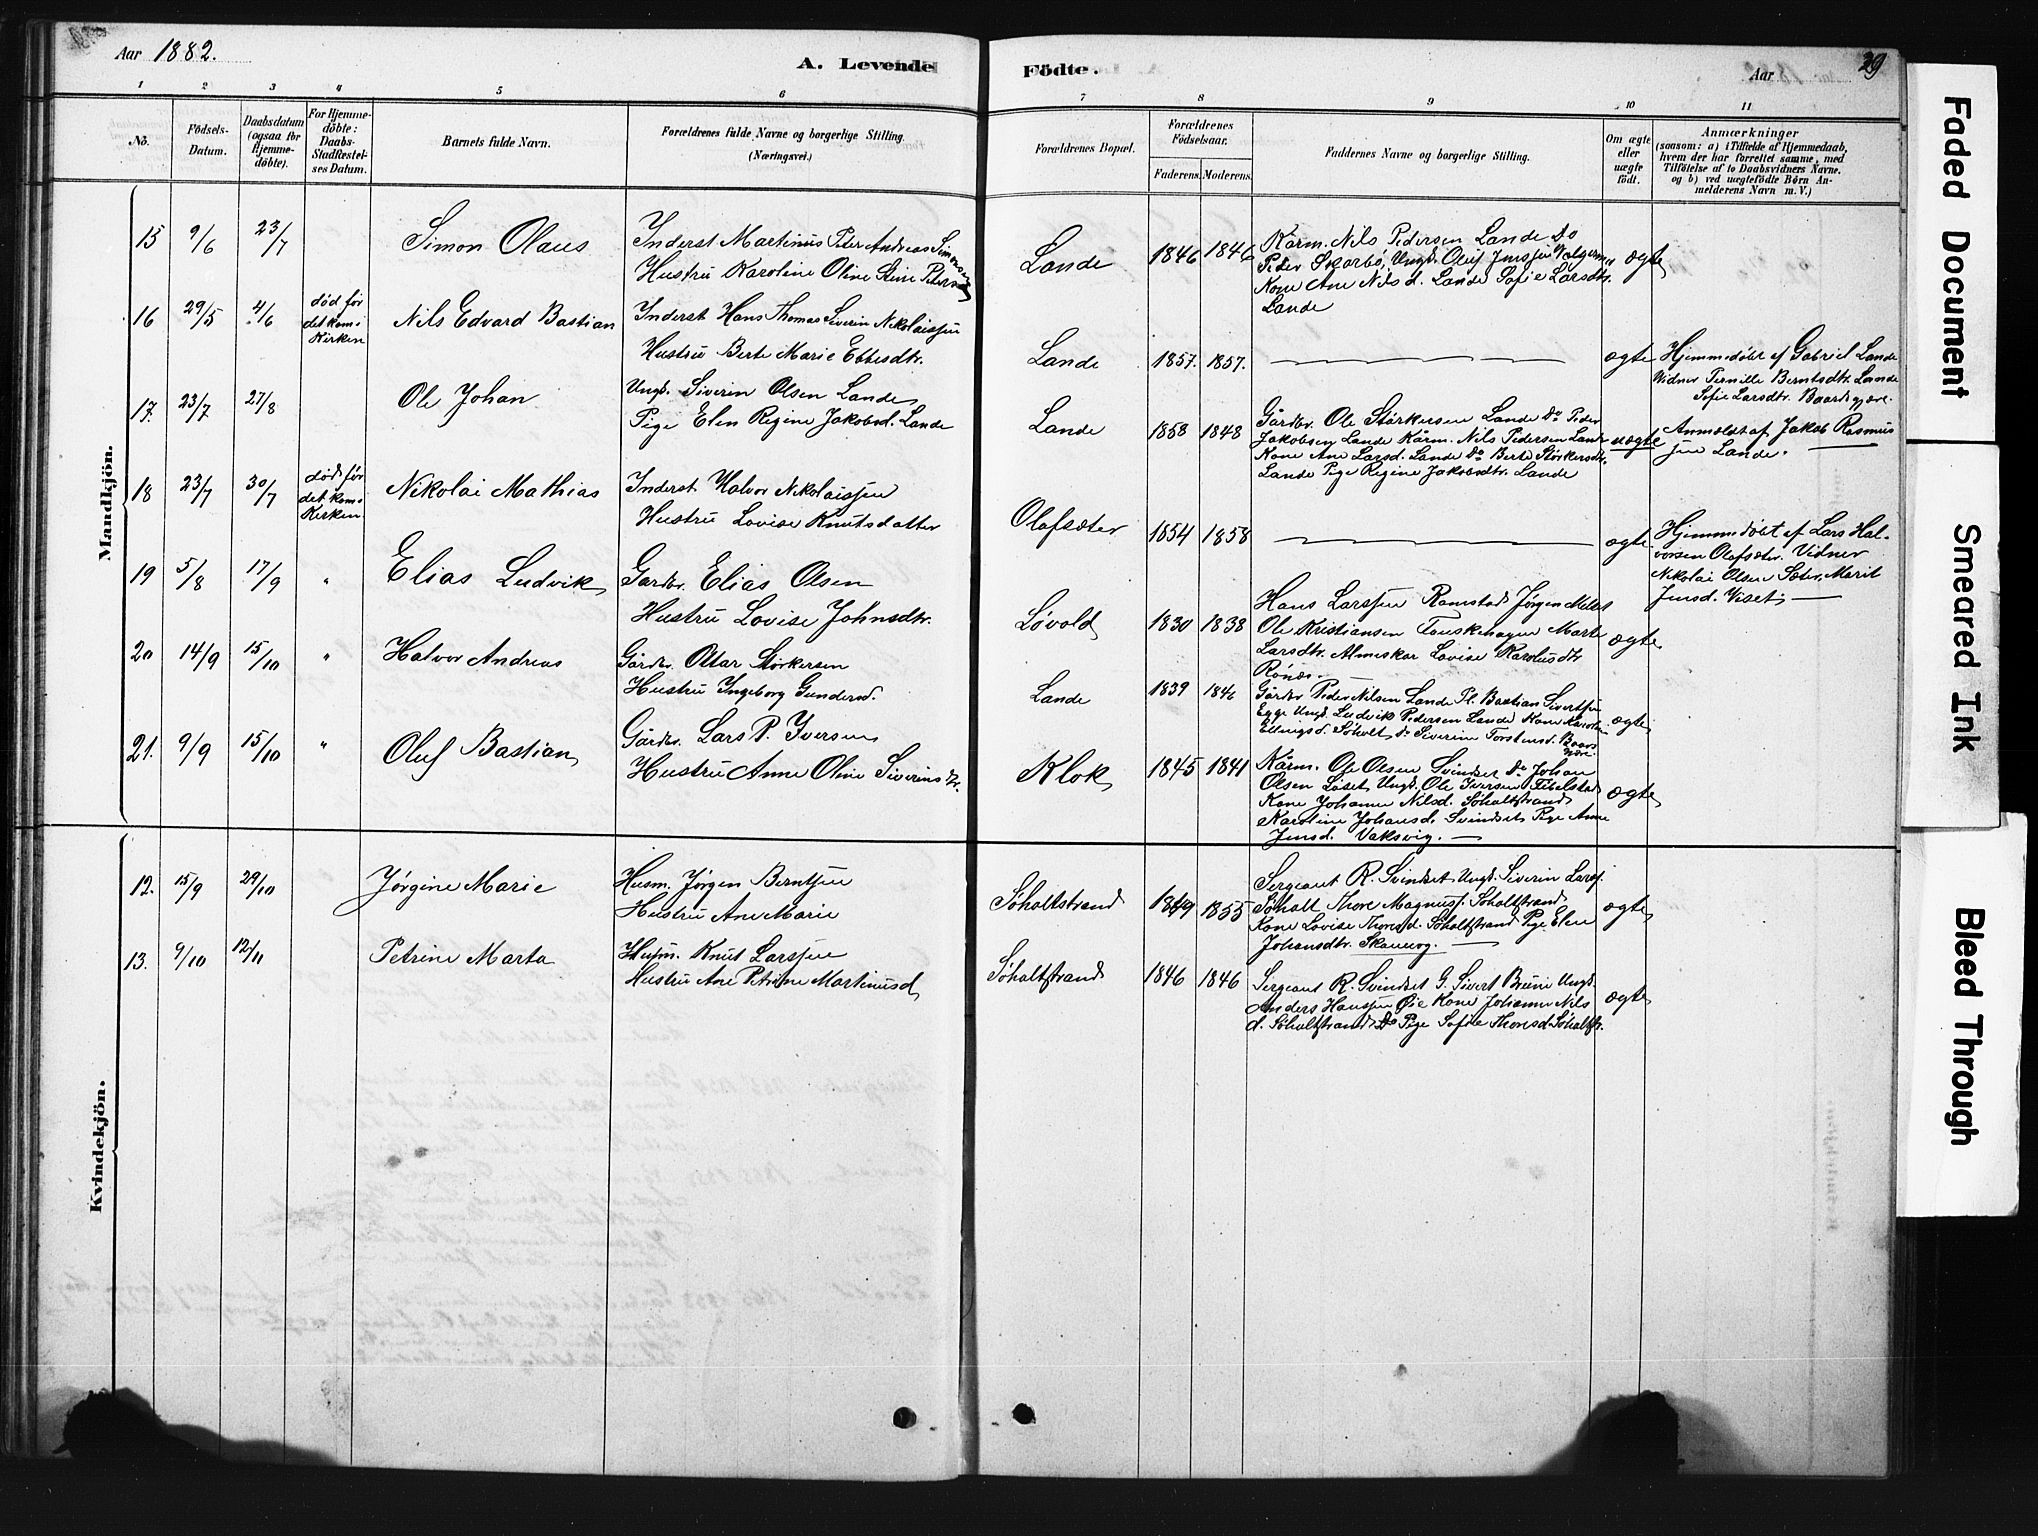 Aar 1882.
A. Levende Födte.
Aar
29
1 2 3 4 5 6 7 8 9 10 11
No.
Födsels-Datum.
Daabsdatum (ogsaa for Hjemme-döbte).
For Hjemme-döbte: Daabs-Stadfæstel-ses Datum.
Barnets fulde Navn.
Forældrenes fulde Navne og borgerlige Stilling. (Næringsvei.)
Forældrenes Bopæl.
Forældrenes Födselsaar.
Faderens. Moderens.
Faddernes Navne og borgerlige Stilling.
Om ægte eller uægte födt.
Anmærkninger
(saasom: a) i Tilfælde af Hjemmedaab,
hvem der har forrettet samme, med
Tilföielse af to Daabsvidners Navne.
og b) ved uægtefödte Börn An-
melderens Navn m. V.)
Mandkjön.
15 9/6 23/7 Simon Olaus
Inderst Martinus Peter Andreas Simonsen
Hustru Karoline Oline Stine
Lande 1846 1846
Kårm. Nils Pedersen Lande Do
Peder Skarbö, Ungk. Oluf Jensen
Kone Ane Nils d. Lande Sofie Larsdtr.
Lande
ægte
16 29/5 4/6 død før det kom i Kirken
Nils Edvard Bastian
Inderst Hans Thomas Severin Nikolaissen
Hustru Berte Marie Ebbesdtr.
Lande 1857. 1857.
ægte
Hjemmedöbt af Gabriel Lande
Vidner Pernille Berntsdtr. Lande
Sofie Larsdtr. Baardsgjære.
17. 23/7 27/8 Ole Johan
Ungk. Siverin Olsen Lande
Pige Elen Regine Jakobsd. Lande
Lande 1858 1848
Gårdbr. Ole Störkersen Lande Do Peder
Jakobsen Lande Kårm. Nils Pedersen Lande
Kone Ane Larsd. Lande Do Berte Störkersdtr.
Lande Pige Regine Jakobsdtr. Lande
uægte
Anmeldt af Jakob Rasmus
sen Lande.
18 23/7 30/7 død før det kom i Kirken
Nikolai Mathias
Inderst Halvor Nikolaissen
Hustru Lovise Knutsdatter
Olafsæter 1854 1858
ægte
Hjemmedöbt af Lars Hal-
vorsen Olafsæter. Vidner
Nikolai Olsen Sæter, Marit
Jensd. Viset
19 5/8 17/9 " Elias Ludvik
Gardbr. Elias Olsen
Hustru Lovise Johnsdtr.
Løvold 1830 1838
Hans Larssen Ramstad Jørgen
Ole Kristiansen Marte
Larsdtr. Almeskar Lovise Karolusdtr
Rönæs.
ægte
20 14/9 15/10 " Halvor Andreas
Gårdbr. Ottar Störkersen
Hustru Ingeborg Gundersd.
Lande 1839 1846
Gårdbr Peder Nilsen Lande Bastian Sivertsen
Egge Ungk. Ludvik Pedersen Lande Kone
Ellingsd. Söholt Do Siverine Torstensd.
ægte
21. 9/9 15/10 " Oluf Bastian
Gårdbr. Lars P. Iversen
Hustru Anne Oline Siverinsdtr.
Klok 1845 1841
Kårm. Ole Olsen Svindset Do Johan
Olsen Löset, Ungk. Ole Iversen Fibelstad
Kone Johanne Nilsd. Söholtstrand
Karoline Johansd. Svindset Pige Anne
Jensd. Vaksvig.
ægte
Kvindekjön.
12. 15/9 29/10 Jørgine Marie
Husm. Jørgen Berntsen
Hustru Ane Marie
Söholtstrand 1849 1855
Sergeant R. Svindset Ungk. Siverin Larss.
Söholt Thore Magnuss. Söholtstrand
Kone Lovise Thoresd. Söholtstrand Pige Elen
Johansdtr.
ægte
13. 9/10 12/11 Petrine Marta
Husm. Knut Larssen
Hustru Ane Petrine Martinusd
Söholtstrand 1846 1846
Sergeant R. Svindset G. Sivert Bruun Ungk.
Anders Hanssen Øie Kone Johanne Nils
d. Söholtstrand Do Pige Sofie Thoresd. Söholtstr.
ægte
Faded Document
Smeared Ink
Bleed Through